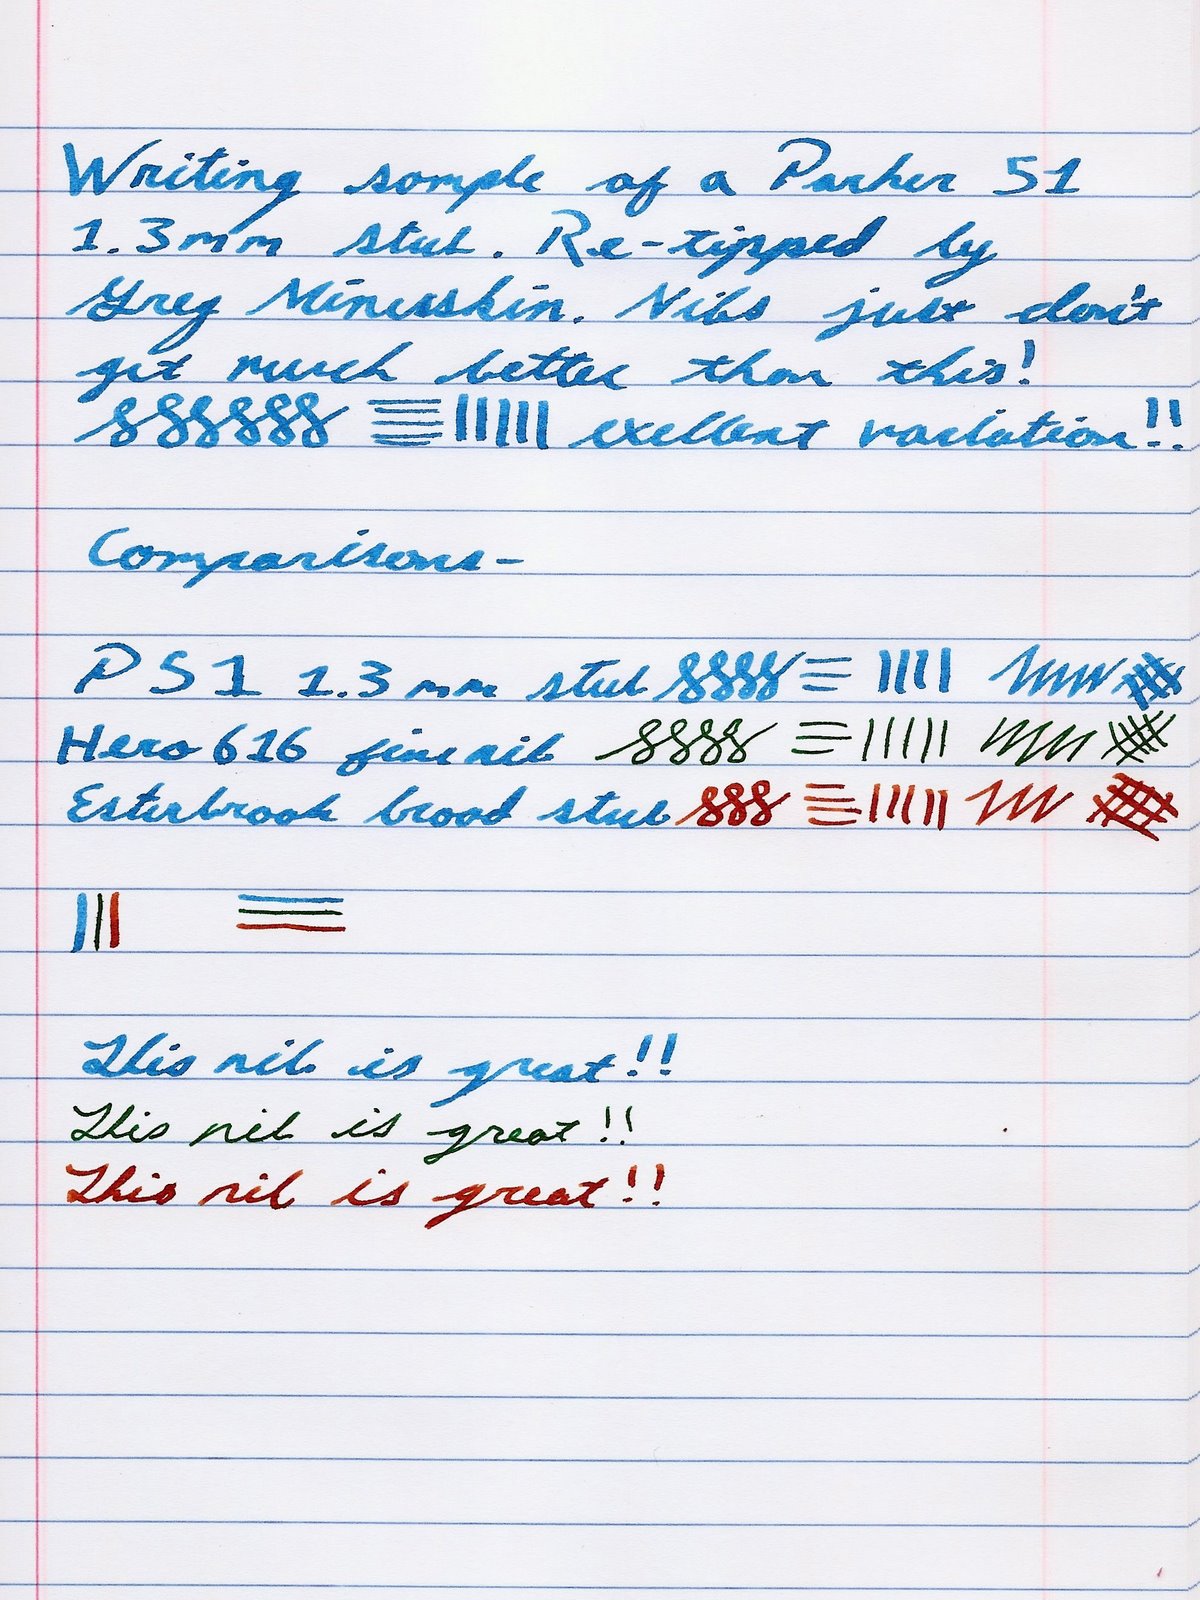 Writing sample of a Parker 51
1.3mm stub. Re-tipped by
Greg Minuskin. Nibs just don't
get much better than this!
exellent variation!!
Comparisons-
P 51 1.3 mm stub
Hero 616 fine nib
Esterbrook broad stub
This nib is great!!
This nib is great!!
This nib is great!!